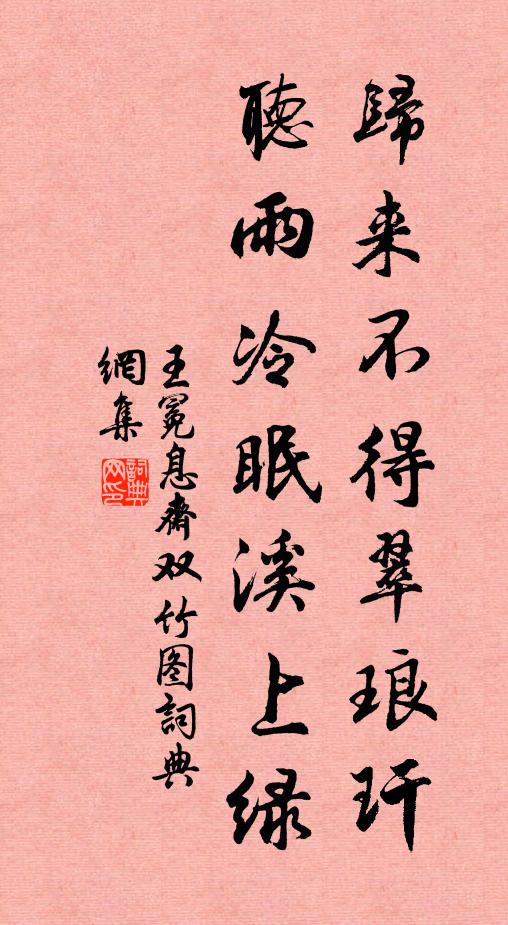 歸来不得翠琅玕
聽雨冷眠溪上绿
王冕息齋双竹图詞典
網集
詞典网印